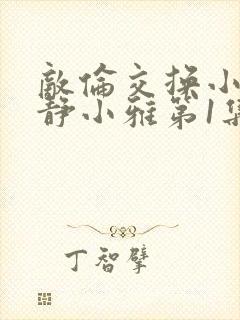 敵倫交操小
静小雅第1集
丁智擘